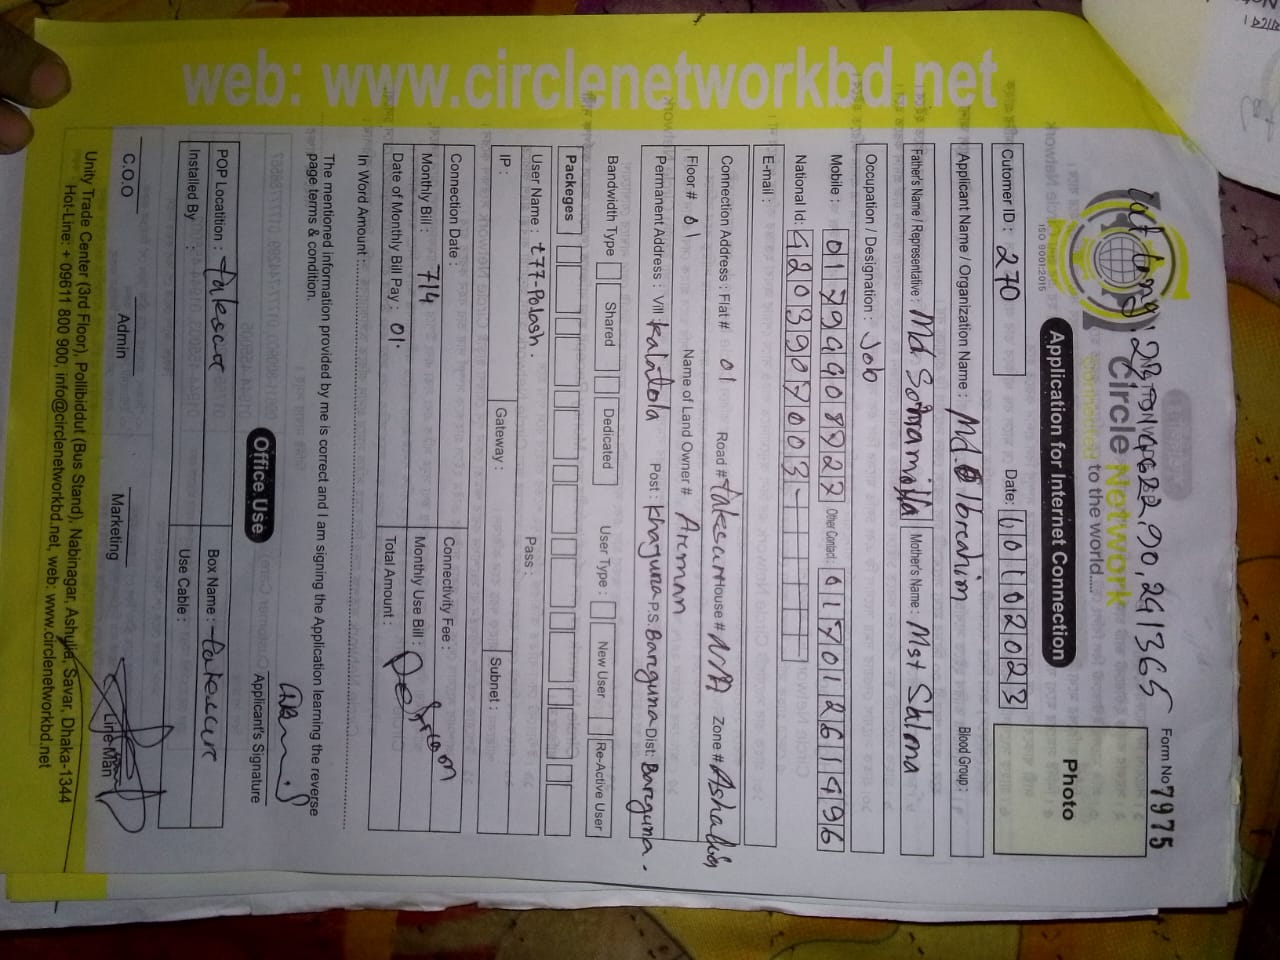 web: www.circlenetworkbd.net
Form No 7975
Circle Network
Connected to the world......
ISO 9001:2015
Application for Internet Connection
Photo
Cutomer ID : 270
Date: 01 01 0 2023
Applicant Name / Organization Name : Md. Ibrahim
Blood Group :
Father's Name / Representative : Md.
Mother's Name : Mst Salma
Occupation / Designation : Job
Mobile : 01799908922
Other Contact : 01701261496
National Id: 4203907003
E-mail :
Connection Address : Flat # 01 Road # House # N/A zone #
Floor # 01 Name of Land Owner # Arman
Permanent Address : Vill : Kalatola Post : Khajura P.S. Barguna Dist: Barguna.
Bandwidth Type Shared Dedicated User Type : New User Re-Active User
Packeges
User Name : t77-Polash. Pass :
IP : Gateway : Subnet :
Connection Date : Connectivity Fee :
Monthly Bill : 714 Monthly Use Bill :
Date of Monthly Bill Pay : 01. Total Amount :
In Word Amount :
The mentioned information provided by me is correct and I am signing the Application learning the reverse
page terms & condition.
Applicant's Signature
Office Use
POP Locatition : Box Name :
Installed By : Use Cable :
C.O.O Admin Marketing Line Man
Unity Trade Center (3rd Floor), Pollibiddut (Bus Stand), Nabinagar, Ashulia, Savar, Dhaka-1344
Hot-Line: + 09611 800 900, info@circlenetworkbd.net, web: www.circlenetworkbd.net